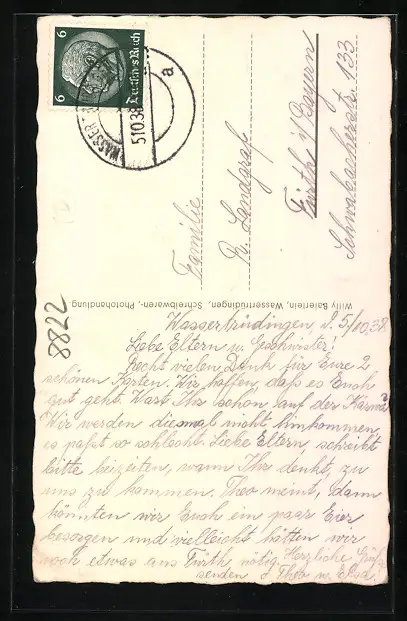 6
6
Deutsches Reich
WASSERTRÜDINGEN
5.10.38
a
Familie
K. Landgraf
Fürth i/Bayern
Schwabacherstr. 133
Willy Baierlein, Wassertrüdingen, Schreibwaren-, Photohandlung.
8822
Wassertrüdingen, d. 5/10.38.
Liebe Eltern u. Geschwister!
Recht vielen Dank für Eure 2
schönen Karten. Wir hoffen, daß es Euch
gut geht. Wart Ihr schon auf der Kärwa?
Wir werden diesmal nicht hinkommen,
es paßt so schlecht. Liebe Eltern, schreibt
bitte beizeiten, wann Ihr denkt, zu
uns zu kommen. Theo meint, dann
könnten wir Euch ein paar Eier
besorgen und vielleicht hätten wir
noch etwas aus Fürth nötig. Herzliche Grüße
senden Theo u. Elsa.